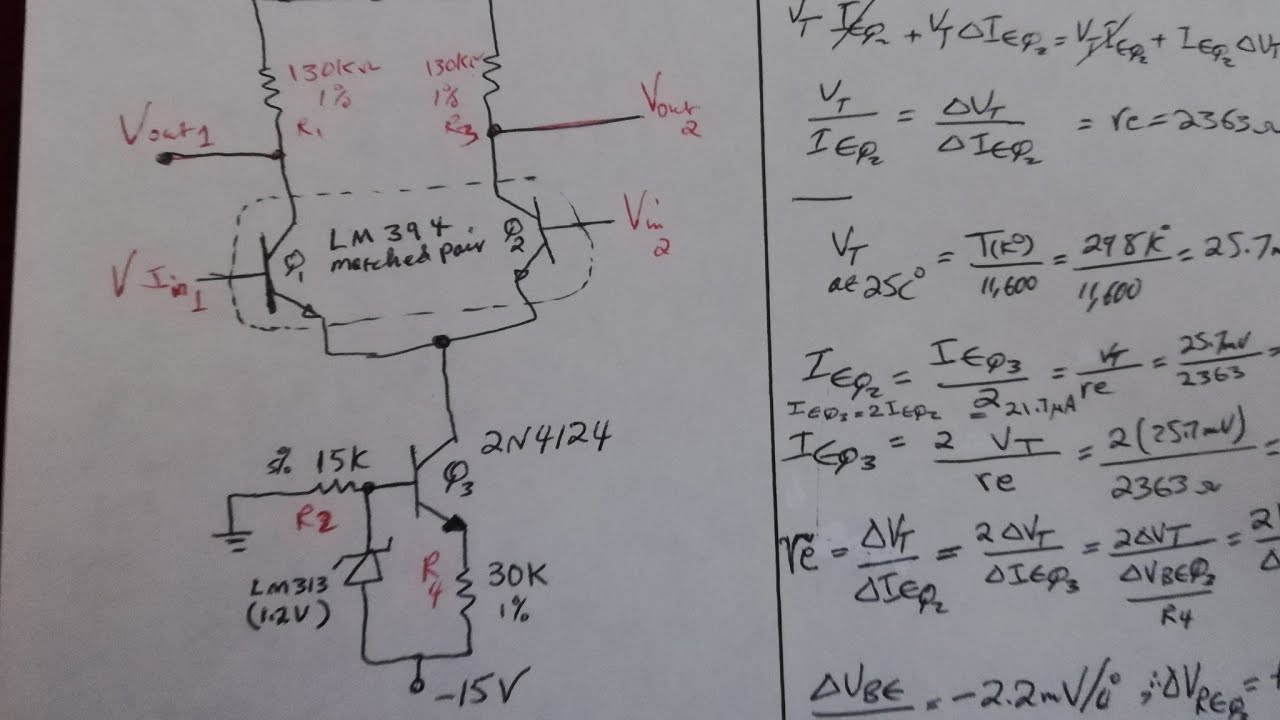 130KΩ
1%
R1
130KΩ
1%
R3
Vout1
Vout
2
LM394
matched pair
Q1
Q2
Vin
2
VIin1
2N4124
5% 15K
R2
Q3
LM313
(1.2V)
R
4
30K
1%
-15V
VT IEQ2 + VT ΔIEQ2 = VT IEQ2 + IEQ2 ΔVT
VT/IEQ2 = ΔVT/ΔIEQ2 = re = 2363Ω
VT at 25C° = T(K°)/11,600 = 298K°/11,600 = 25.7
IEQ2 = IEQ3/2 = VT/re = 25.7mV/2363 =
IEQ3 = 2IEQ2 = 21.7μA
IEQ3 = 2 VT/re = 2(25.7mV)/2363Ω =
re = ΔVT/ΔIEQ2 = 2ΔVT/ΔIEQ3 = 2ΔVT/ΔVBEQ3/R4 = 2
ΔVBE = -2.2mV/C° ; ∴ΔVREQ =